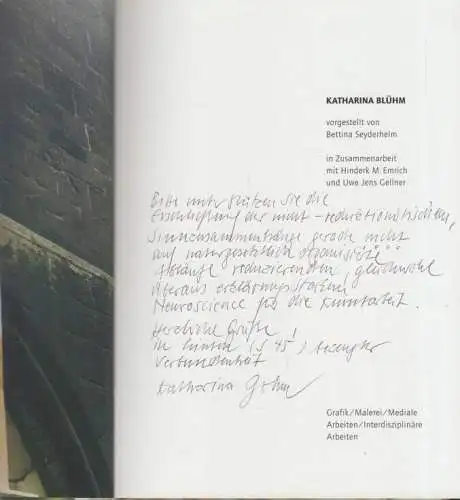 KATHARINA BLÜHM
vorgestellt von
Bettina Seyderhelm
in Zusammenarbeit
mit Hinderk M. Emrich
und Uwe Jens Gellner
Bitte unterstützen Sie die
Erschließung der nicht-reduktionistischen,
Sinnzusammenhänge gerade nicht
auf naturgesetzlich organisierte
Abläufe reduzierenden, gleichwohl
überaus erklärungsstarken
Neuroscience für die Kunstarbeit.
Herzliche Grüße!
In (S. 45)
Verbundenheit
Katharina
Grafik/Malerei/Mediale
Arbeiten/Interdisziplinäre
Arbeiten